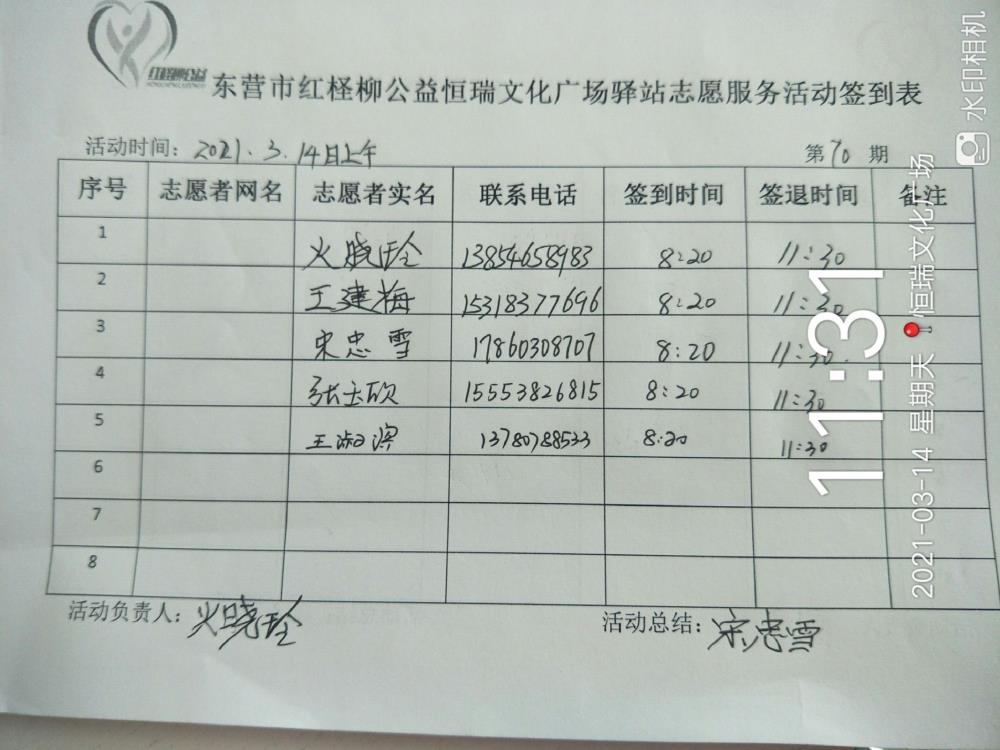 红柽柳公益
东营市红柽柳公益恒瑞文化广场驿站志愿服务活动签到表
活动时间：2021.3.14日上午 第70期
序号 志愿者网名 志愿者实名 联系电话 签到时间 签退时间 备注
1 火晓玲 13854658983 8:20 11:30
2 王建梅 15318377696 8:20 11:30
3 宋忠雪 17860308707 8:20 11:30.
4 张玉欣 15553826815 8:20 11:30
5 王淑滨 13780788533 8:20 11:30
6
7
8
活动负责人：火晓玲 活动总结：宋忠雪
11:31
2021-03-14 星期天 恒瑞文化广场
水印相机